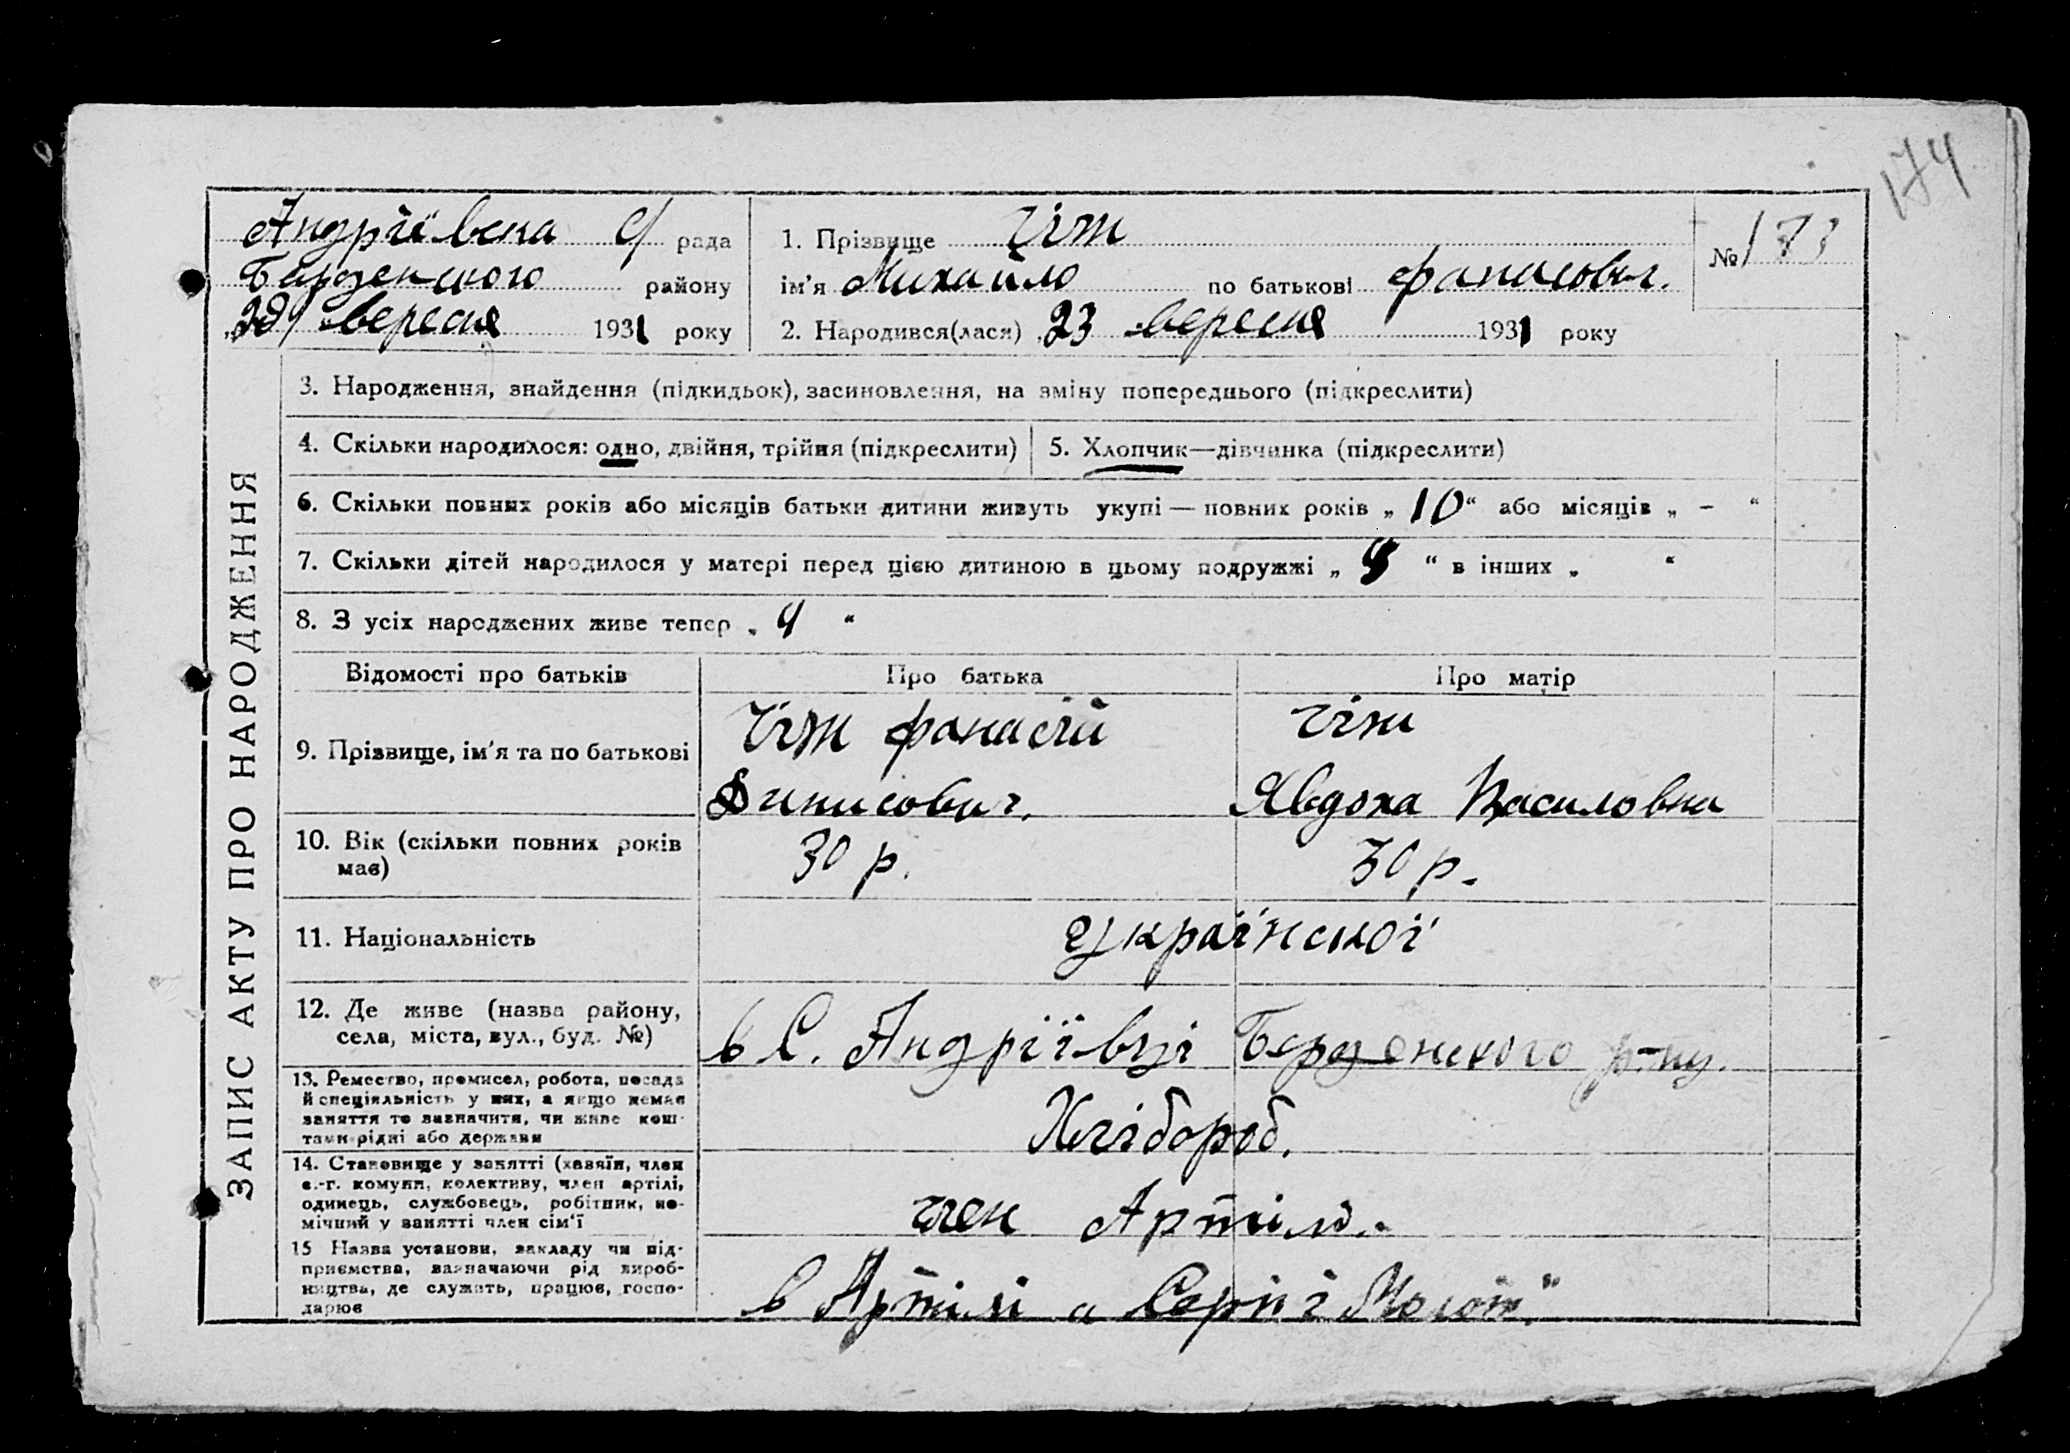 174
Андріївська с/ рада
Бердянського району
"28" вересня 1931 року
1. Прізвище Чіж
№ 173
ім'я Михайло по батькові Фанасович.
2. Народився(лася) 23 вересня 1931 року
ЗАПИС АКТУ ПРО НАРОДЖЕННЯ
3. Народження, знайдення (підкидьок), засиновлення, на зміну попереднього (підкреслити)
4. Скільки народилося: одно, двійня, трійня (підкреслити) 5. Хлопчик—дівчинка (підкреслити)
6. Скільки повних років або місяців батьки дитини живуть укупі — повних років „ 10 “ або місяців „ - “
7. Скільки дітей народилося у матері перед цією дитиною в цьому подружжі „ “ в інших „ “
8. З усіх народжених живе тепер „ 4 “
Відомості про батьків Про батька Про матір
9. Прізвище, ім'я та по батькові
Чіж Фанасій
Динисович.
Чіж
Явдоха Василовна
10. Вік (скільки повних років
має)
30 р. 30 р.
11. Національність української
12. Де живе (назва району,
села, міста, вул., буд. №)
в С. Андріївці Бердянського р-ну.
13. Ремество, промисел, робота, посада
й спеціяльність у них, а якщо немає
заняття то визначити, чи живе кош-
тами рідні або держави
Хлібороб.
14. Становище у занятті (хазяїн, член
с.-г. комуни, колективу, член артілі,
одинець, службовець, робітник, по-
мічний у занятті член сім'ї
член Артілі.
15 Назва установи, закладу чи під-
приємства, вазначаючи рід вироб-
ництва, де служить, працює, госпо-
дарює
в Артілі „Серп і Молот"